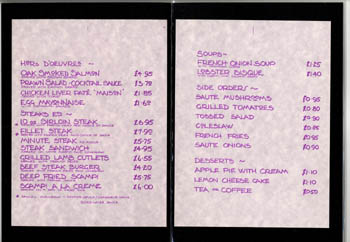 HORS D'OEUVRES ~
OAK SMOKED SALMON £4·95
PRAWN SALAD - COCKTAIL SAUCE £3·75
CHICKEN LIVER PATE 'MAISON' £1·85
EGG MAYONNAISE £1·65
STEAKS ETC ~
10 oz. SIRLOIN STEAK £6·95
FILLET STEAK £7·90
MINUTE STEAK £5·75
STEAK SANDWICH £4·95
GRILLED LAMB CUTLETS £6·55
BEEF STEAK BURGER £4·20
DEEP FRIED SCAMPI £5·75
SCAMPI A LA CREME £6·00
SOUPS ~
FRENCH ONION SOUP £1·25
LOBSTER BISQUE £1·40
SIDE ORDERS ~
SAUTE MUSHROOMS £0·95
GRILLED TOMATOES £0·80
TOSSED SALAD £0·90
COLESLAW £0·85
FRENCH FRIES £0·95
SAUTE ONIONS £0·90
DESSERTS ~
APPLE PIE WITH CREAM £1·10
LEMON CHEESE CAKE £1·10
TEA OR COFFEE £0·50